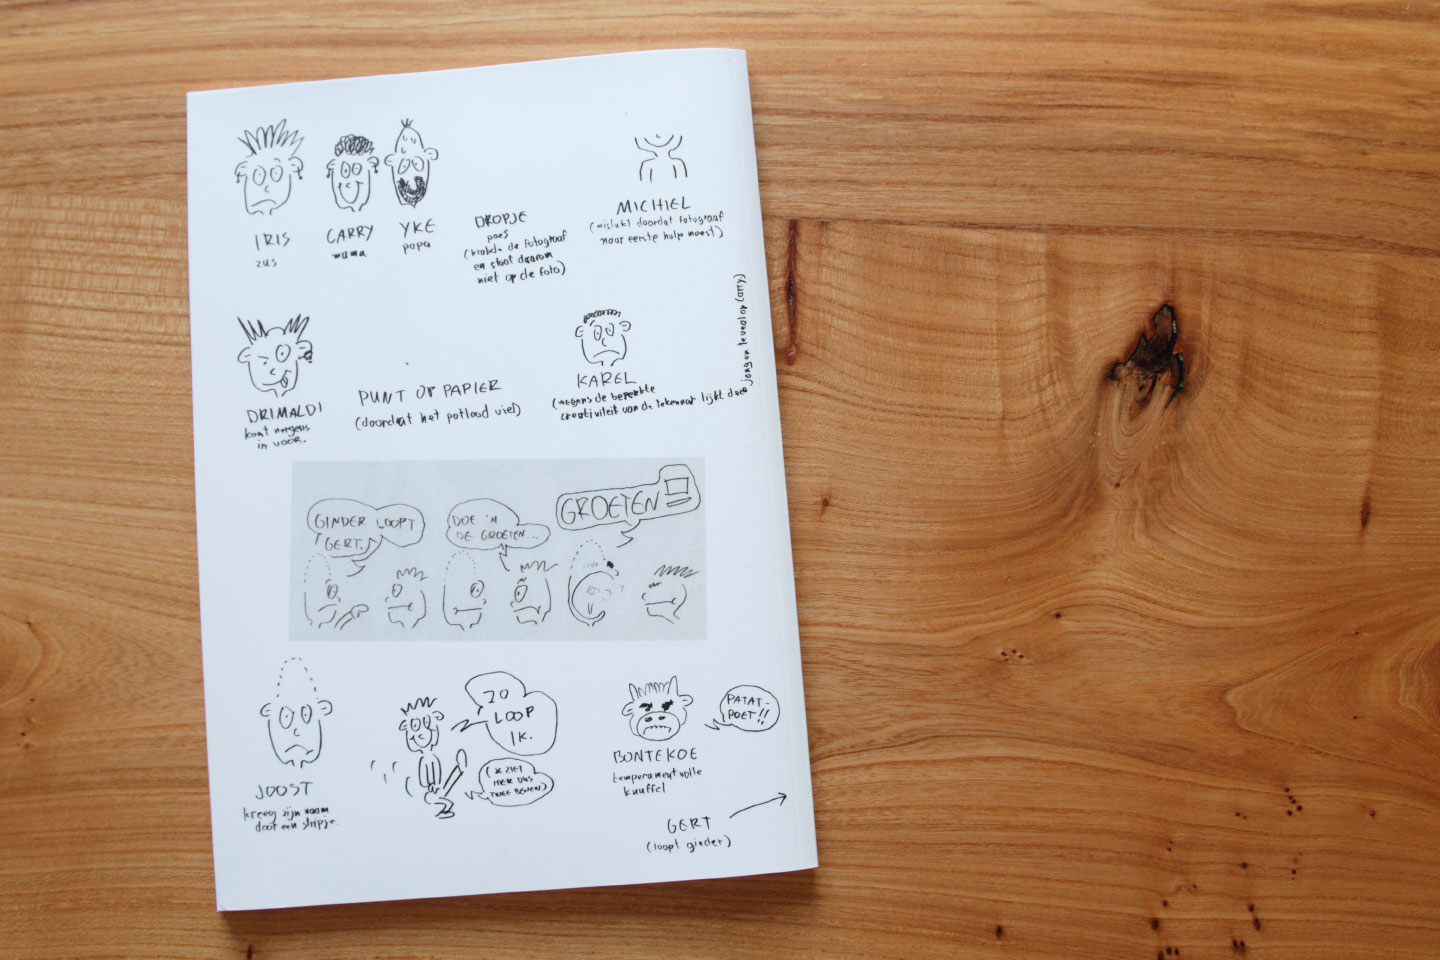 IRIS
zus
CARRY
mama
YKE
papa
DROPJE
poes
(krabde de fotograaf
en staat daarom
niet op de foto)
MICHIEL
(mislukt doordat fotograaf
naar eerste hulp moest)
DRIMALDI
komt nergens
in voor.
PUNT OP PAPIER
(doordat het potlood viel)
KAREL
(wegens de beperkte
creativiteit van de tekenaar lijkt deze
jongen te veel op Carry)
GINDER LOOPT
GERT.
DOE 'M
DE GROETEN...
GROETEN
JOOST
kreeg zijn naam
door een stripje.
ZO
LOOP
IK.
(IK ZIET
HIER DUS
TWEE BENEN)
BONTEKOE
temperamentvolle
knuffel
PATAT-
POET!!
GERT
(loopt ginder)